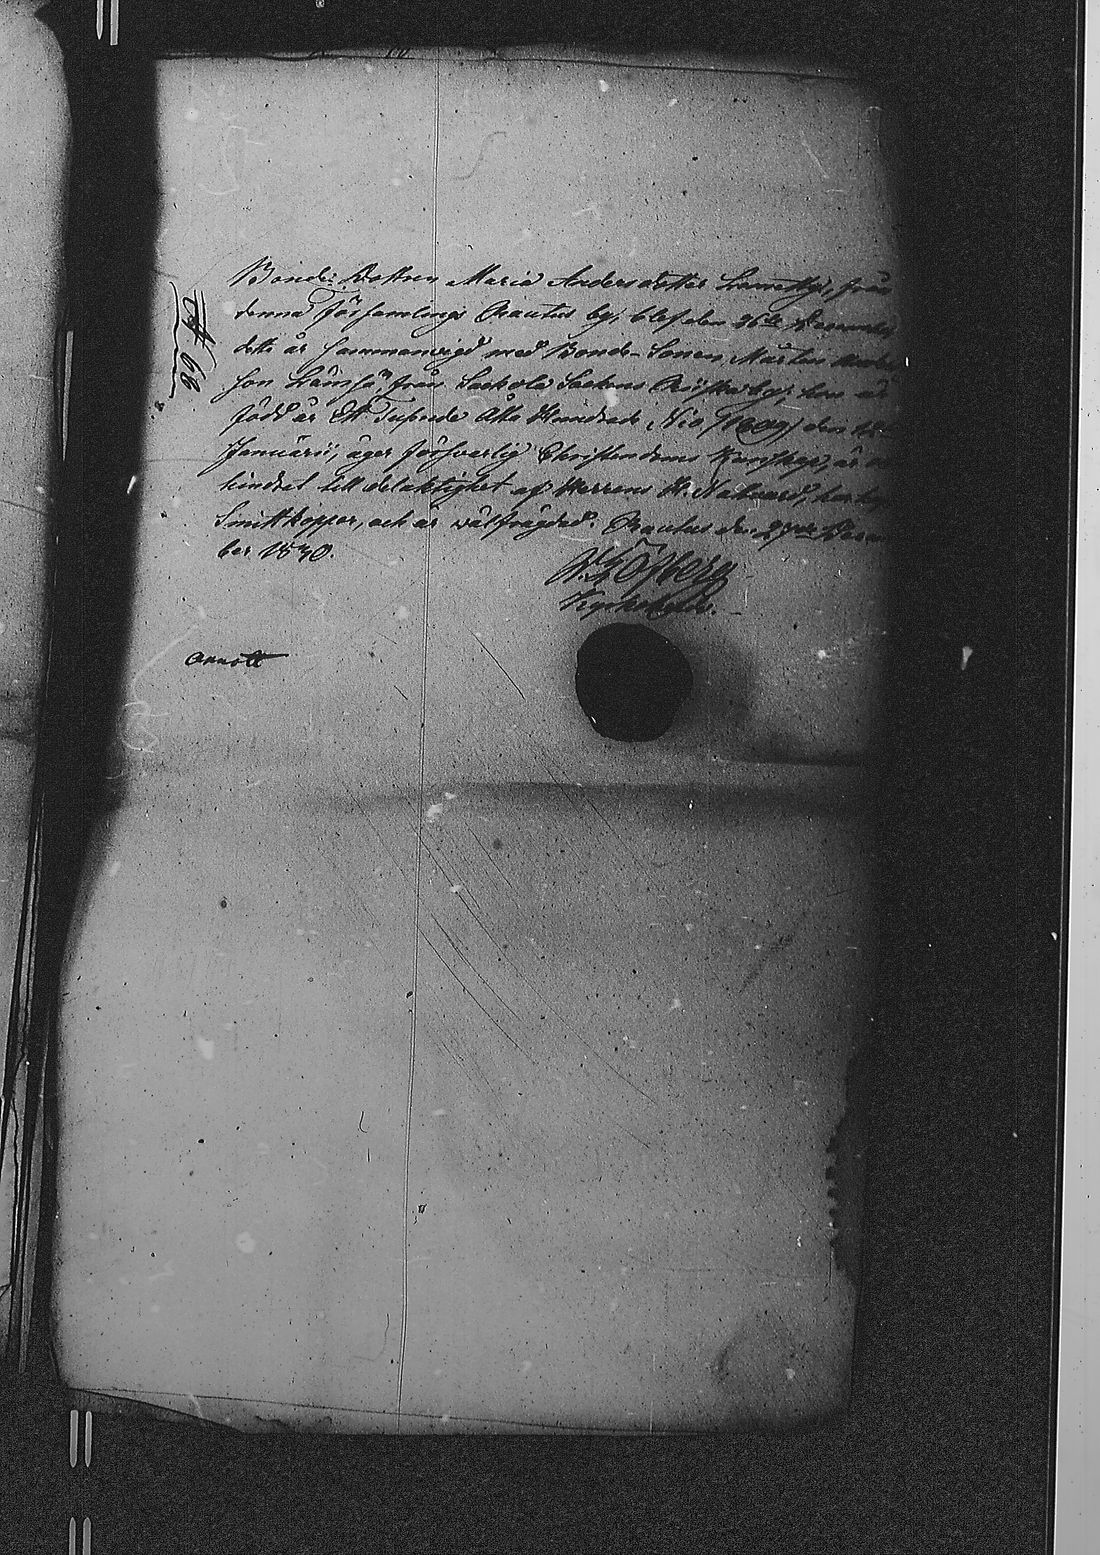 Bonde-Dottren Maria Andersdotter från
denna Församlings Rautus by, blef den 26te December
detta år sammanvigd med Bonde-Sonen, Mårten
son Lämsä, från Sakkola Sockens by; hon är
född år Ett Tusende Åtta Hundrade Nio /1809/ den
Januarii, äger försvarlig Christendoms Kunskap, är
hindrad till delaktighet af Herrens H. Nattvard, har haft
Smittkoppor, och är välfrägdad. Rautus den 27de Decem-
ber 1830.
Löfberg
Kyrkoherde.
№ 68